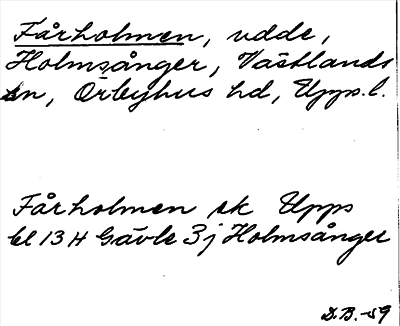 Fårholmen, udde,
Holmsånger, Västlands
sn, Örbyhus hd, Upps.l.
Fårholmen ek Upps
bl 13 H Gävle 3j Holmsånger
D.B.-59